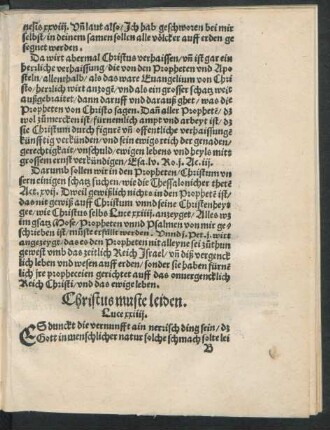 nesis xxviij. Vñ laut also/ Ich hab geschworen bei mir
selbst/ in deinem samen sollen alle völcker auff erden ge
segnet werden.
Da wirt abermal Christus verhaissen/ vñ ist gar ein
herrliche verhaissung/ die von den Propheten vnd Apo-
steln/ allenthalb/ als das ware Euangelium von Chri
sto/ herrlich wirt anzogẽ/ vnd als ein grosser schatz weit
außgebraitet/ dann darauff vnd darauß ghet/ was die
Propheten von Christo sagen. Dañ aller Prophetẽ/ dz
wol zůmercken ist/ fürnemlich ampt vnd arbeyt ist/ dz
sie Christum durch figurẽ vñ öffentliche verhaissungẽ
künfftig verkünden/ vnd sein ewigs reich der genaden/
gerechtigkait/ vnschuld/ ewigen lebens vnd heyls mit
grossem ernst verkündigen/ Esa. lv. Ro. j. Ac. iij.
Darumb sollen wir in den Propheten/ Christum vn
sern einigen schatz suchen/ wie die Thessalonicher thetẽ
Act. xvij. Dweil gewißlich nichts in den Prophetẽ ist/
das nit gewiß auff Christum vnnd seine Christen heys
get/ wie Christus selbs Luce xxiiij. anzeyget/ Alles wz
im gsatz Mose/ Propheten vnnd Psalmen von mir ge-
schriben ist/ můste erfült werden. Vnnd j. Pet. j. wirt
angezeygt/ das es den Propheten nit alleyne sei zůthun
gewest vmb das zeitlich Reich Israel/ vñ diß vergenck
lich leben vnd wesen auff erden/ sonder sie haben fürnẽ
lich jre propheceien gerichtet auff das onuergencklich
Reich Christi/ vnd das ewige leben.
Christus muste leiden.
Luce xxiiij.
ES dunckt die vernunfft ain nerrisch ding sein/ dz
Gott in menschlicher natur solche schmach solte lei
B